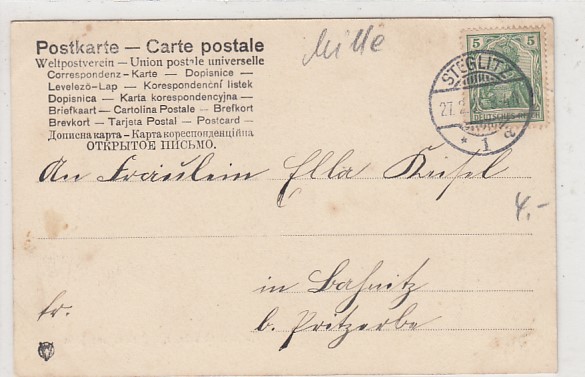 Postkarte — Carte postale
Weltpostverein — Union postale universelle
Correspondenz-Karte — Dopisnice —
Levelező-Lap — Korespondenční listek
Dopisnica — Karta korespondencyjna —
Briefkaart — Cartolina Postale — Brefkort
Brevkort — Tarjeta Postal — Postcard —
Дописна карта — Карта кореспонденційна
ОТКРЫТОЕ ПИСЬМО.
Mille
5 5
DEUTSCHES
STEGLITZ
27.2
* 1 a
An Fräulein Ella Kiesel
4.-
in Bahnitz
b. Pritzerbe
fr.